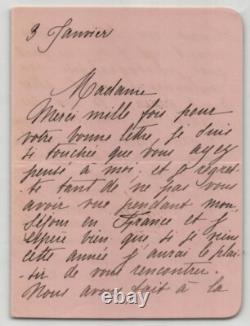 3 Janvier
Madame
Merci mille fois pour
votre bonne lettre, je suis
si touchée que vous ayez
pensé à moi. et je regret-
te tant de ne pas vous
avoir vue pendant mon
séjour en France et j'
espère bien, que si je viens
cette année j'aurai le plai-
sir de vous rencontrer.
Nous avons fait à la
© 123pemf